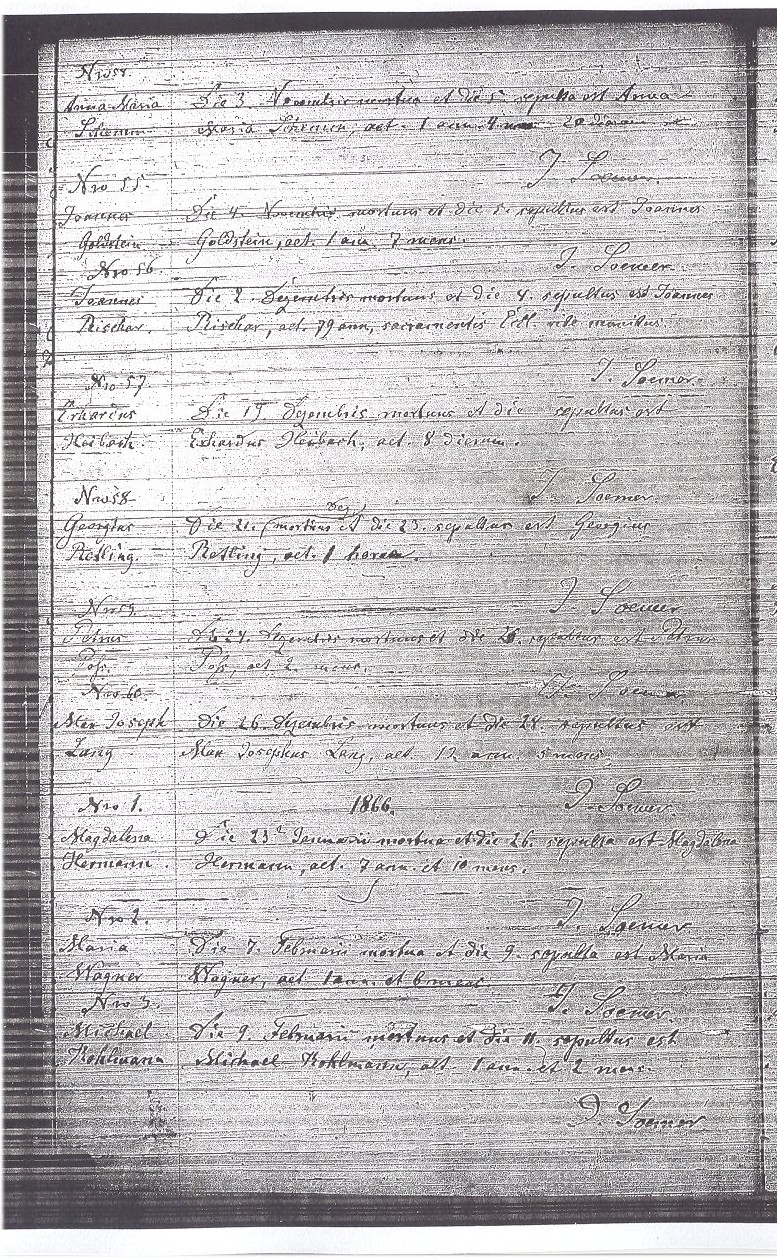 Nro 54.
Anna Maria Die 3. Novembris mortua et die 5. sepulta est Anna
Schemm Maria Schemm, aet. 1 ann. 4 20 dierum
J. Soemer.
Nro 55.
Joannes Die 4. Novembris mortuus et die 5. sepultus est Joannes
Goldstein Goldstein, aet. 1 ann. 7 mens.
J. Soemer.
Nro 56.
Joannes Die 2. Dezembris mortuus et die 4. sepultus est Joannes
Rischar. Rischar, aet. 79 ann, sacramentis Eccl. rite munitus.
J. Soemer.
Nro 57
Erhardus Die 15 Dezembris mortuus et die sepultus est
Heibach. Erhardus Heibach, aet. 8 dierum.
J. Soemer
Nro 58
Georgius Die 21. Dez. mortuus et die 23. sepultus est Georgius
Retling. Retling, aet. 1 horae.
J. Soemer
Nro 59.
Petrus Die 24. Dezembris mortuus et die 26. sepultus est Petrus
Pohs. Pohs, aet 2. mens.
J. Soemer
Nro 60.
Max Joseph Die 26. Dezembris mortuus et die 28. sepultus est
Lang Max Josephus Lang, aet. 12 ann. 5 mens.
J. Soemer.
Nro 1. 1866.
Magdalena Die 23 Januarii mortua et die 26. sepulta est Magdalena
Hermann. Hermann, aet. 7 ann. et 10 mens.
J. Soemer
Nro 2.
Maria Die 7. Februarii mortua et die 9. sepulta est Maria
Wagner Wagner, aet 1 ann. et 6 mens.
J. Soemer.
Nro 3.
Michael Die 9. Februarii mortuus et die 11. sepultus est
Kohlmann Michael Kohlmann, aet. 1 ann. et 2 mens.
J. Soemer